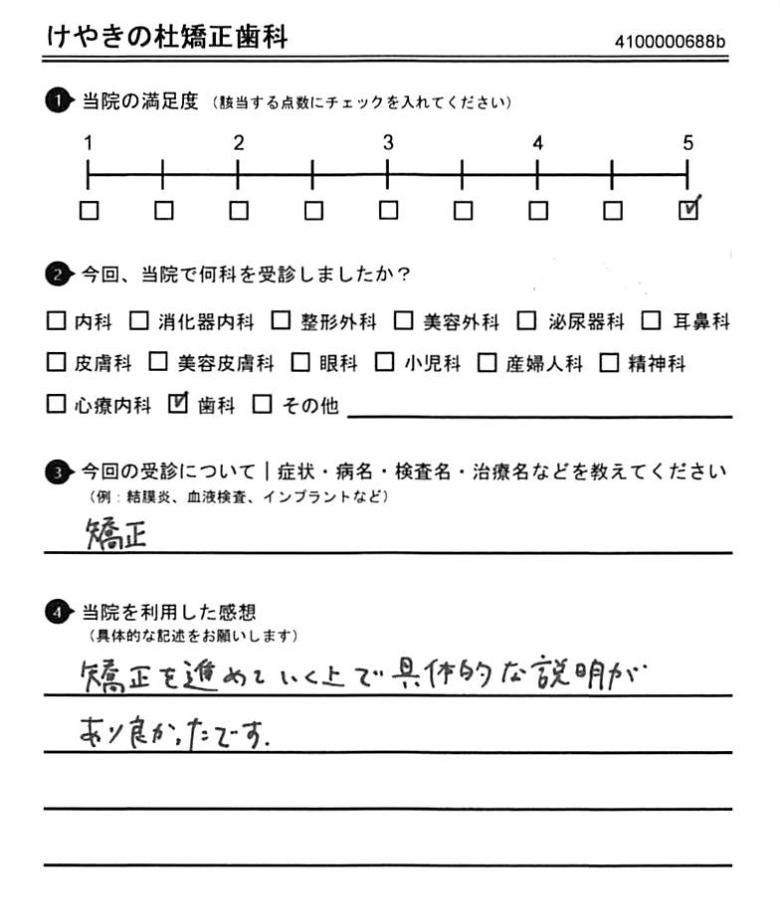 けやきの杜矯正歯科
4100000688b
1 当院の満足度（該当する点数にチェックを入れてください）
1 2 3 4 5
2 今回、当院で何科を受診しましたか？
□ 内科 □ 消化器内科 □ 整形外科 □ 美容外科 □ 泌尿器科 □ 耳鼻科
□ 皮膚科 □ 美容皮膚科 □ 眼科 □ 小児科 □ 産婦人科 □ 精神科
□ 心療内科 ☑ 歯科 □ その他
3 今回の受診について｜症状・病名・検査名・治療名などを教えてください
（例：結膜炎、血液検査、インプラントなど）
矯正
4 当院を利用した感想
（具体的な記述をお願いします）
矯正を進めていく上で具体的な説明が
あり良かったです.